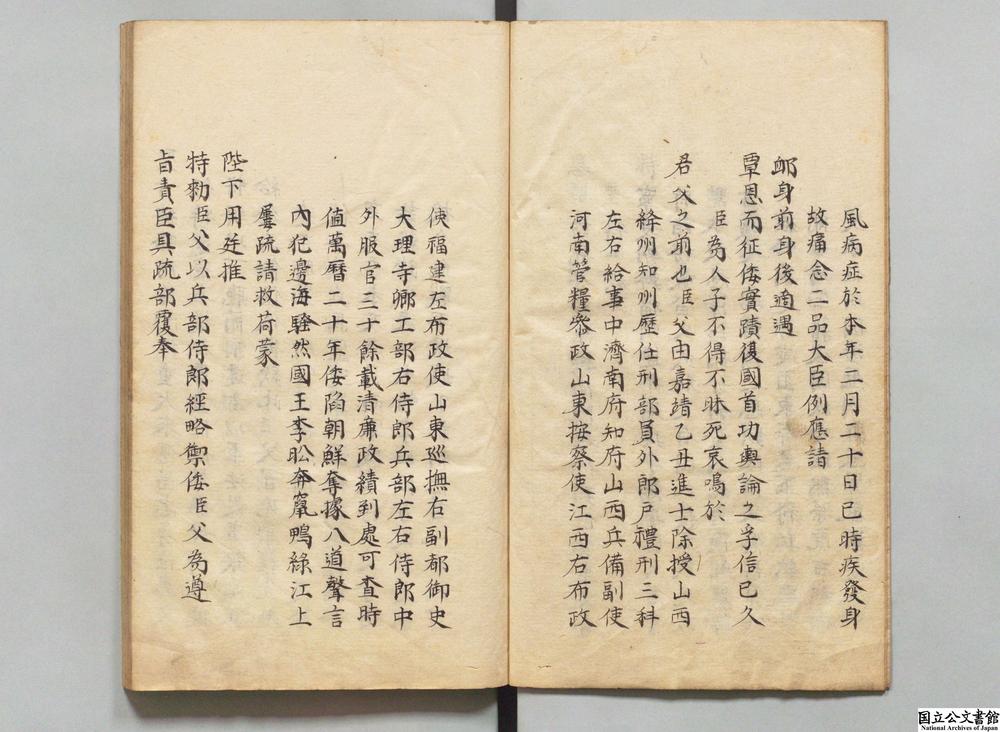 風病症於本年二月二十日巳時疾發身
故痛念二品大臣例應請
卹身前身後適遇
覃恩而征倭實蹟復國首功輿論之孚信已久
臣為人子不得不昧死哀鳴於
君父之前也臣父由嘉靖乙丑進士除授山西
絳州知州歷仕刑部員外郎戶禮刑三科
左右給事中濟南府知府山西兵備副使
河南管糧參政山東按察使江西右布政
使福建左布政使山東巡撫右副都御史
大理寺卿工部右侍郎兵部左右侍郎中
外服官三十餘載清廉政績到處可查時
值萬曆二十年倭陷朝鮮奪據八道聲言
內犯邊海騷然國王李昖奔竄鴨綠江上
屢疏請救荷蒙
陛下用廷推
特勅臣父以兵部侍郎經略禦倭臣父為遵
旨責臣具疏部覆奉
国立公文書館
National Archives of Japan